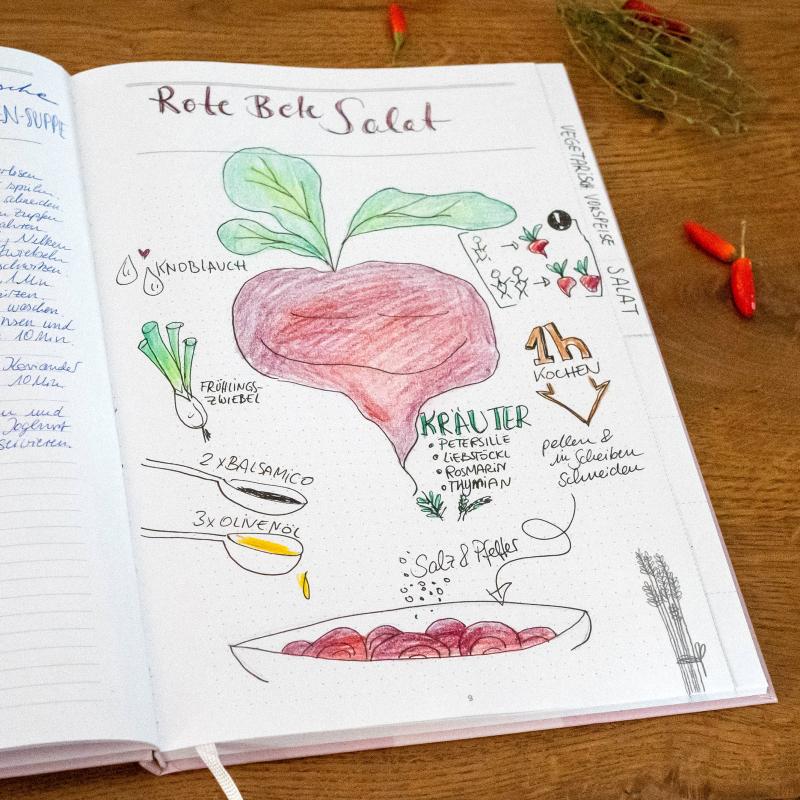 EN-SUPPE
spülen.
schneiden
zupfen
Nelken
Zwiebeln
1 Min
waschen
und
10 Min.
Koriander
10 Min.
und
Joghurt
servieren.
Rote Bete Salat
VEGETARISCH VORSPEISE SALAT
KNOBLAUCH
FRÜHLINGS-
ZWIEBEL
1h
KOCHEN
pellen &
in Scheiben
schneiden
KRÄUTER
• PETERSILIE
• LIEBSTÖCKL
• ROSMARIN
• THYMIAN
2 x BALSAMICO
3x OLIVENÖL
Salz & Pfeffer
9